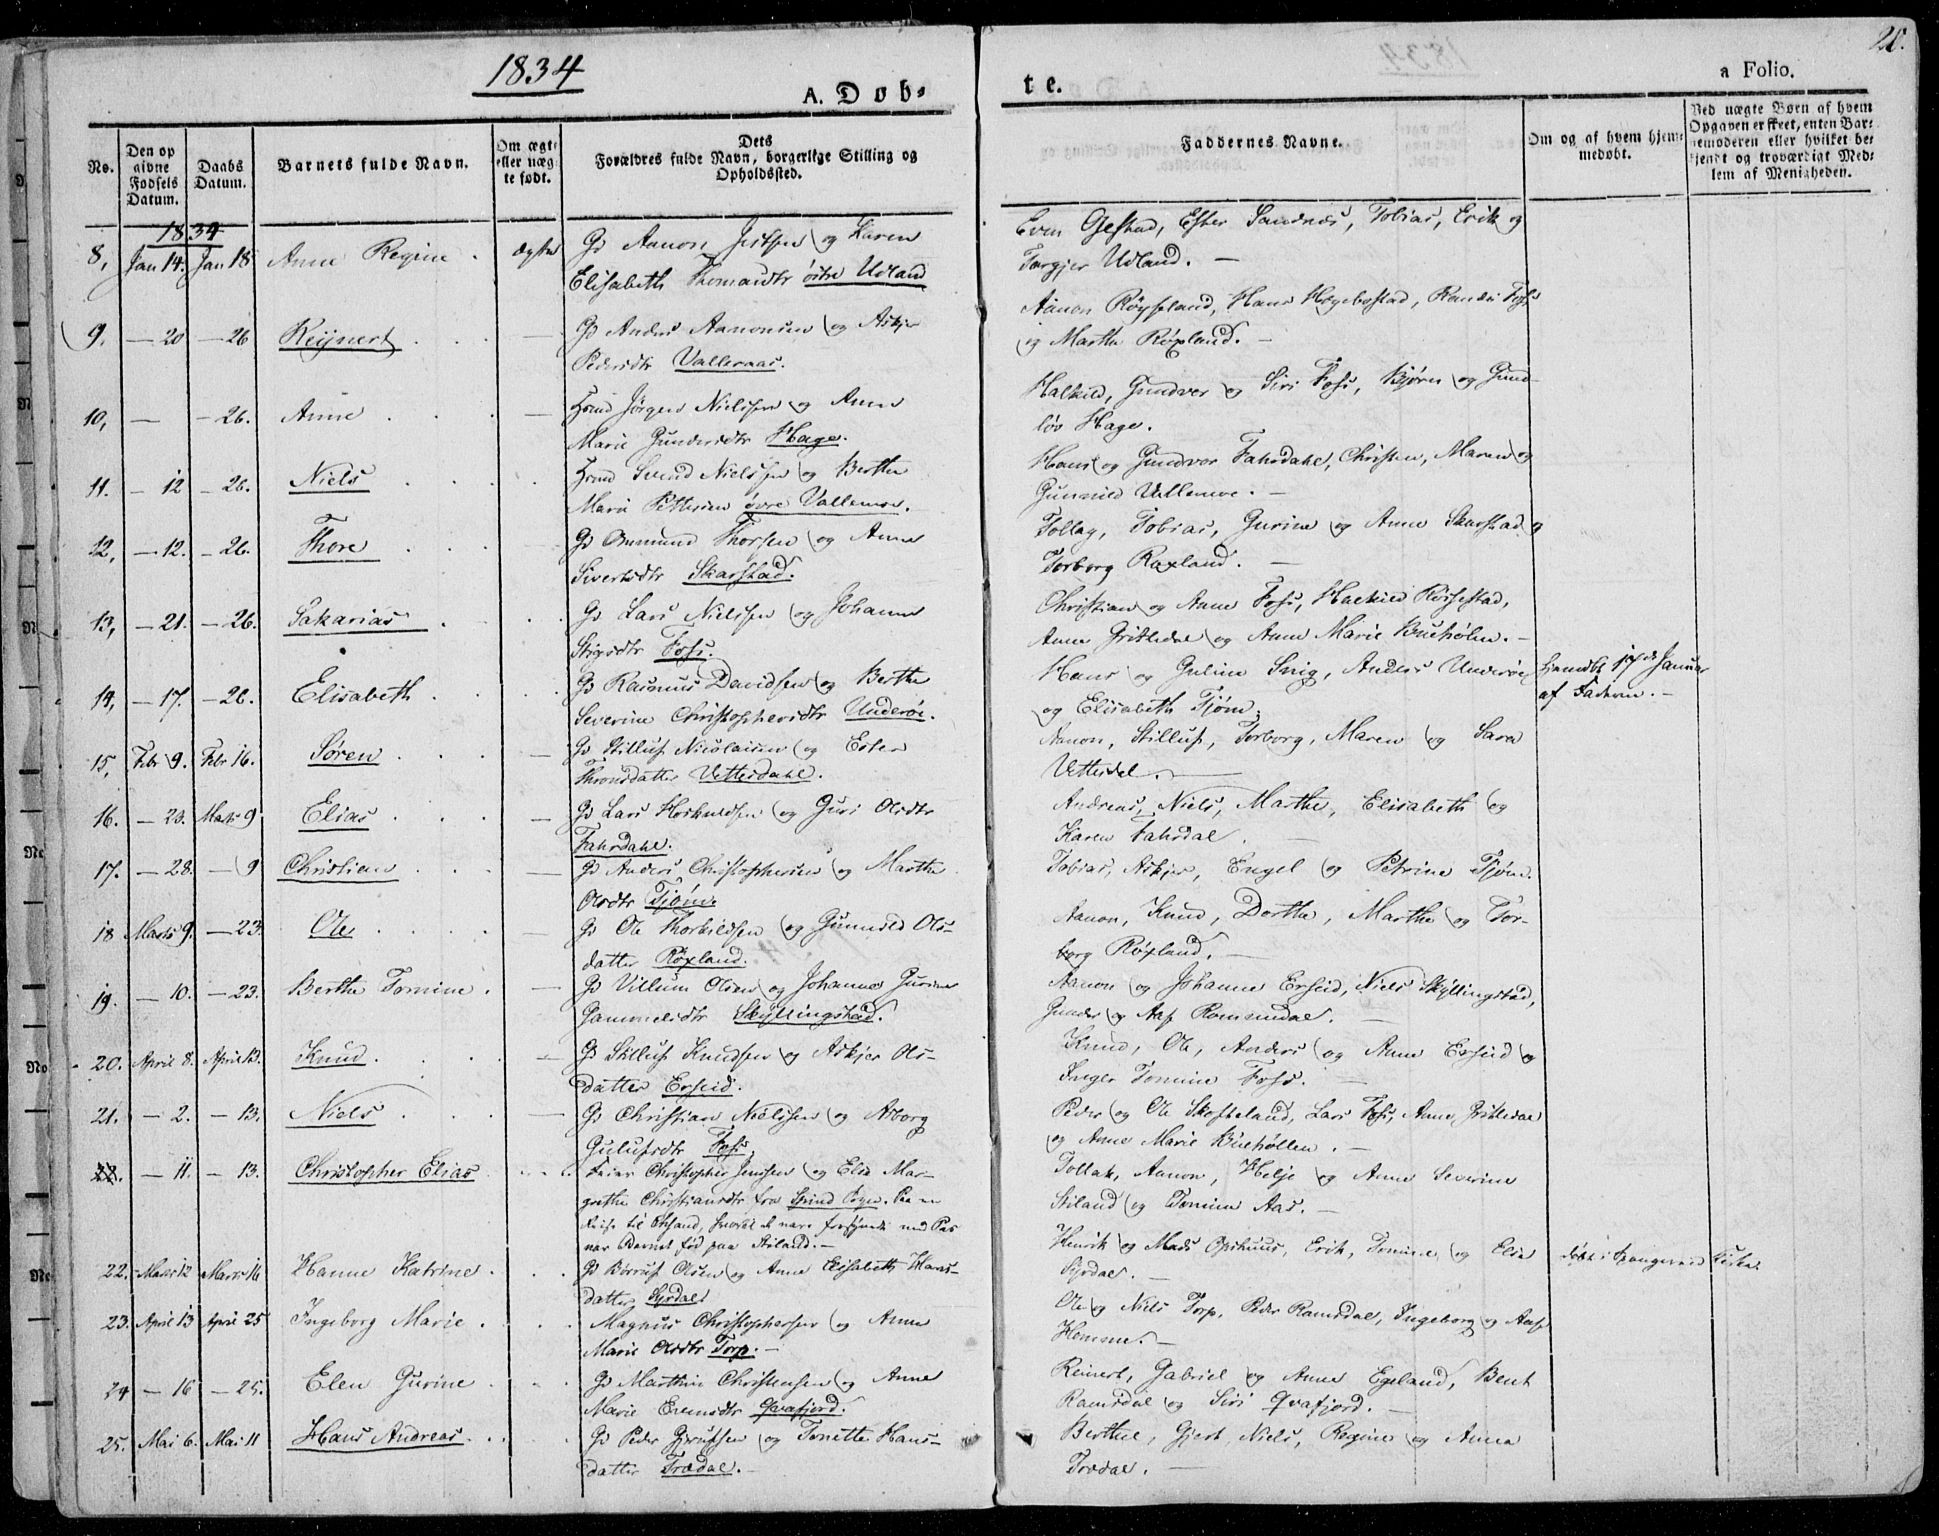 1834
A. Døb-
te.
20.
a Folio.
No.
Den op
givne
Fødsels
Datum.
Daabs
Datum.
Barnets fulde Navn.
Om ægte
eller uæg-
te født.
Dets
Forældres fulde Navn, borgerlige Stilling og
Opholdssted.
Faddernes Navne.
Om og af hvem hjem-
medøbt.
Ved uægte Børn af hvem
Opgaven er skeet, enten Bar-
nemoderen eller hvilket be-
kjendt og troværdigt Med-
lem af Menigheden.
1834
8, Jan 14. Jan 18 Anne Regine. ægte Gd Aanon Jensen og Karen
Elisabeth Thomasdtr östre Udland
Even Gestad, Ester Sandnæs, Tobias, Erik og
Targjer Udland. —
9. — 20 — 26 Reijnert — Gd Anders Aanonsen og Askjer
Pedersdtr Vallemoe.
Aanon Röysland, Hans Hægebostad, Foss
og Marthe Röxland. —
10, — — 26. Anne — Hmd Jörgen Nielsen og Anne
Marie Gundersdtr Hage.
Halkild, Gundvor og Siri Foss, Björn og Gund-
löv Hage.
11. — 12 — 26. Niels Hmd Svend Nielsen og Berthe
Marie Pettersen övre Vallemoe.
Hans og Gundvor Fahrdahl, Christen, Maren og
Gunnild Vallemoe. —
12, — 12. — 26. Thore Gd Ommund Thorsen og Anne
Sivertsdtr Skarstad.
Tollag, Tobias, Gurine og Anne Skarstad og
Torborg Röxland. —
13, — 21. — 26. Sakarias Gd Lars Nielsen og Johanne
Stigsdtr Foss.
Christian og Anne Foss, Halkild Rossestad,
Anne Gritledal og Anne Marie Buehölen. —
14, — 17. — 26. Elisabeth Gd Rasmus Davidsen og Berthe
Severine Christophersdtr Underöe.
Hans og Guline Snig, Anders Underöe
og Elisabeth Tjöm.
Hiemdöbt 17de Januar
af Faderen. —
15, Febr 9. Febr 16. Sören — Gd Stilluf Nicolaisen og Ester
Thronsdatter Vettesdahl.
Aanon, Stilluf, Torborg, Maren og Sara
Vettesdal. —
16. — 23. Marts 9 Elias — Gd Lars Hoskuldsen og Guri Olsdtr
Fahrdahl.
Andreas, Niels, Marthe, Elisabeth og
Karen Fahrdal. —
17. — 28. — 9 Christian — Gd Anders Christophersen og Marthe
Olsdtr Tjöm.
Tobias, Askjer, Engel og Petrine Tjöm.
18 Marts 9. — 23. Ole Gd Ole Thorkildsen og Gunnild Ols-
datter Röxland.
Aanon, Knud, Dorthe, Marthe og Tor-
borg Röxland. —
19. — 10. — 23. Berthe Tomine. — Gd Villum Olsen og Johanne Gurine
Gammelsdtr Skÿllingstad.
Aanon og Johanne Erseid, Niels Skÿllingstad,
Gunder og Aase Romsendal. —
20. April 8. April 13. Knud. — Gd Stilluf Knudsen og Askjer Ols-
datter Erseid.
Knud, Ole, Anders og Anne Erseid og
Inger Tomine Foss. —
21. — 2. — 13. Niels — Gd Christian Nielsen og Asborg
Gulufsdtr Foss.
Peder og Ole Skofteland, Lars Foss, Anne Gritledal
og Anne Marie Buehöllen. —
— 11. — 13. Christopher Elias Christopher Jensen og Else Mar-
grethe Christiansdtr fra Spind Sogn. Paa en
Reise til Chsand,
Barnet fød paa Stiland. —
Tollak, Aanon, Helje og Anne Severine
Stiland og Tomine Aas. —
22. Marts 12 Marts 16 Hanne Katrine. Gd Börruf Olsen og Anne Elisabeth Hans-
datter Syrdal
Henrik og Mads Opshuus, Erik, Tomine og Else
Syrdal. —
døbt i Spangereid Kirke.
23. April 13 April 25 Ingeborg Marie. Magnus Christophersen og Anne
Marie Olsdtr Torp. —
Ole og Niels Torp, Peder Ramsdal, Ingeborg og Aase
Homme. —
24 — 16 — 25. Elen Gurine Gd Marthin Christensen og Anne
Marie Evensdtr Qvafjord.
Reinert, Gabriel og Anne Egeland, Bent
Ramsdal og Siri Qvafjord. —
25. Mai 6. Mai 11 Hans Andreas Gd Peder Gjerufsen og Tonette Hans-
datter Trædal. —
Berthe, Gjert, Niels, Regine og Anna
Trædal. —